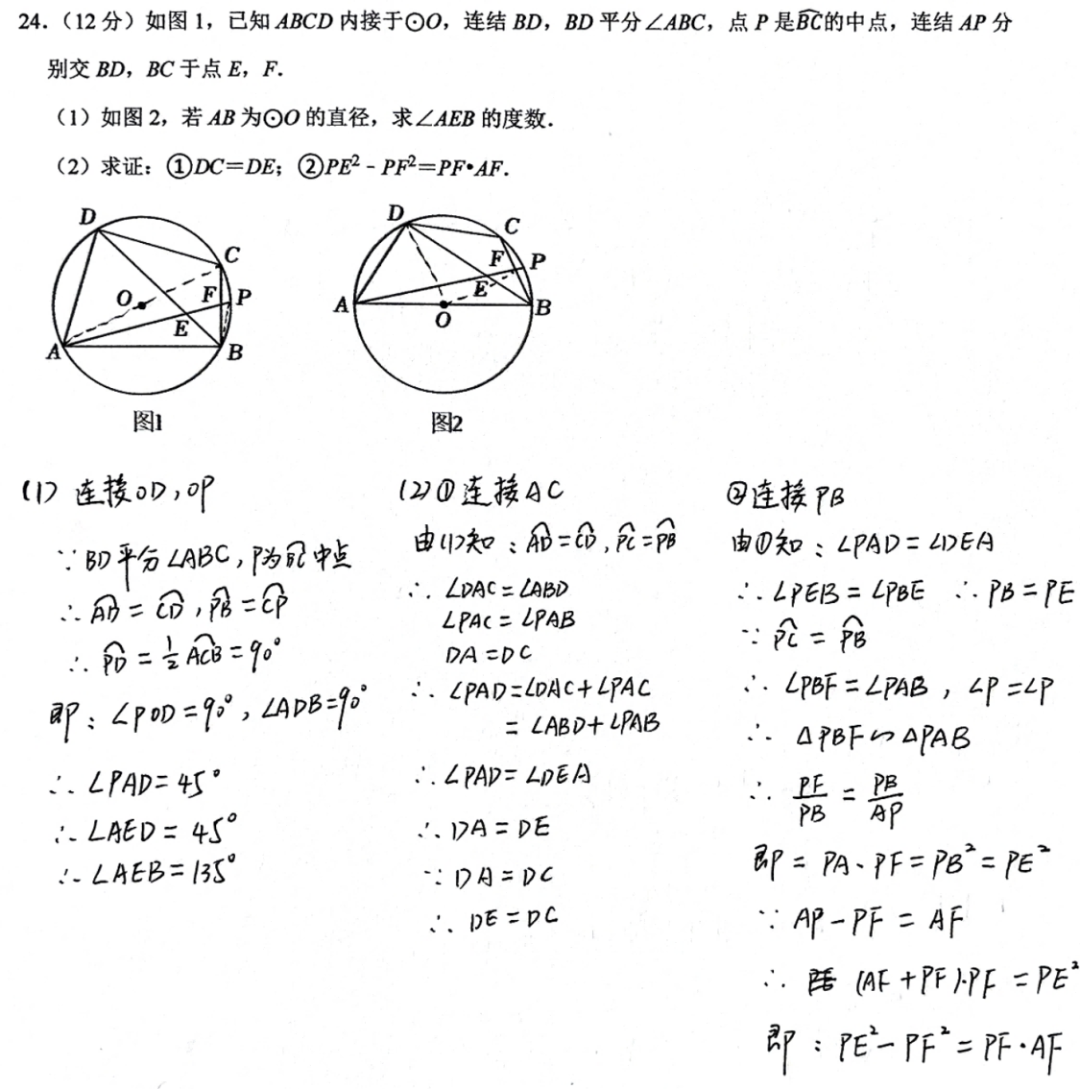 24.（12 分）如图 1，已知 ABCD 内接于⊙O，连结 BD，BD 平分∠ABC，点 P 是BC的中点，连结 AP 分
别交 BD，BC 于点 E，F．
（1）如图 2，若 AB 为⊙O 的直径，求∠AEB 的度数．
（2）求证：①DC＝DE；②PE²﹣PF²＝PF•AF．
D
C
O
F
P
E
A
B
图1
D
C
F
P
E
A
O
B
图2
(1) 连接OD,OP
∵BD平分∠ABC,P为BC中点
∴AD=CD,PB=CP
∴PD=½ACB=90°
即:∠POD=90°,∠ADB=90°
∴∠PAD=45°
∴∠AED=45°
∴∠AEB=135°
(2)①连接AC
由(1)知:AD=CD,PC=PB
∴∠DAC=∠ABD
∠PAC=∠PAB
DA=DC
∴∠PAD=∠DAC+∠PAC
=∠ABD+∠PAB
∴∠PAD=∠DEA
∴DA=DE
∵DA=DC
∴DE=DC
②连接PB
由①知:∠PAD=∠DEA
∴∠PEB=∠PBE ∴PB=PE
∵PC=PB
∴∠PBF=∠PAB,∠P=∠P
∴△PBF∽△PAB
∴PF/PB=PB/AP
即=PA·PF=PB²=PE²
∵AP-PF=AF
∴(AF+PF)·PF=PE²
即:PE²-PF²=PF·AF